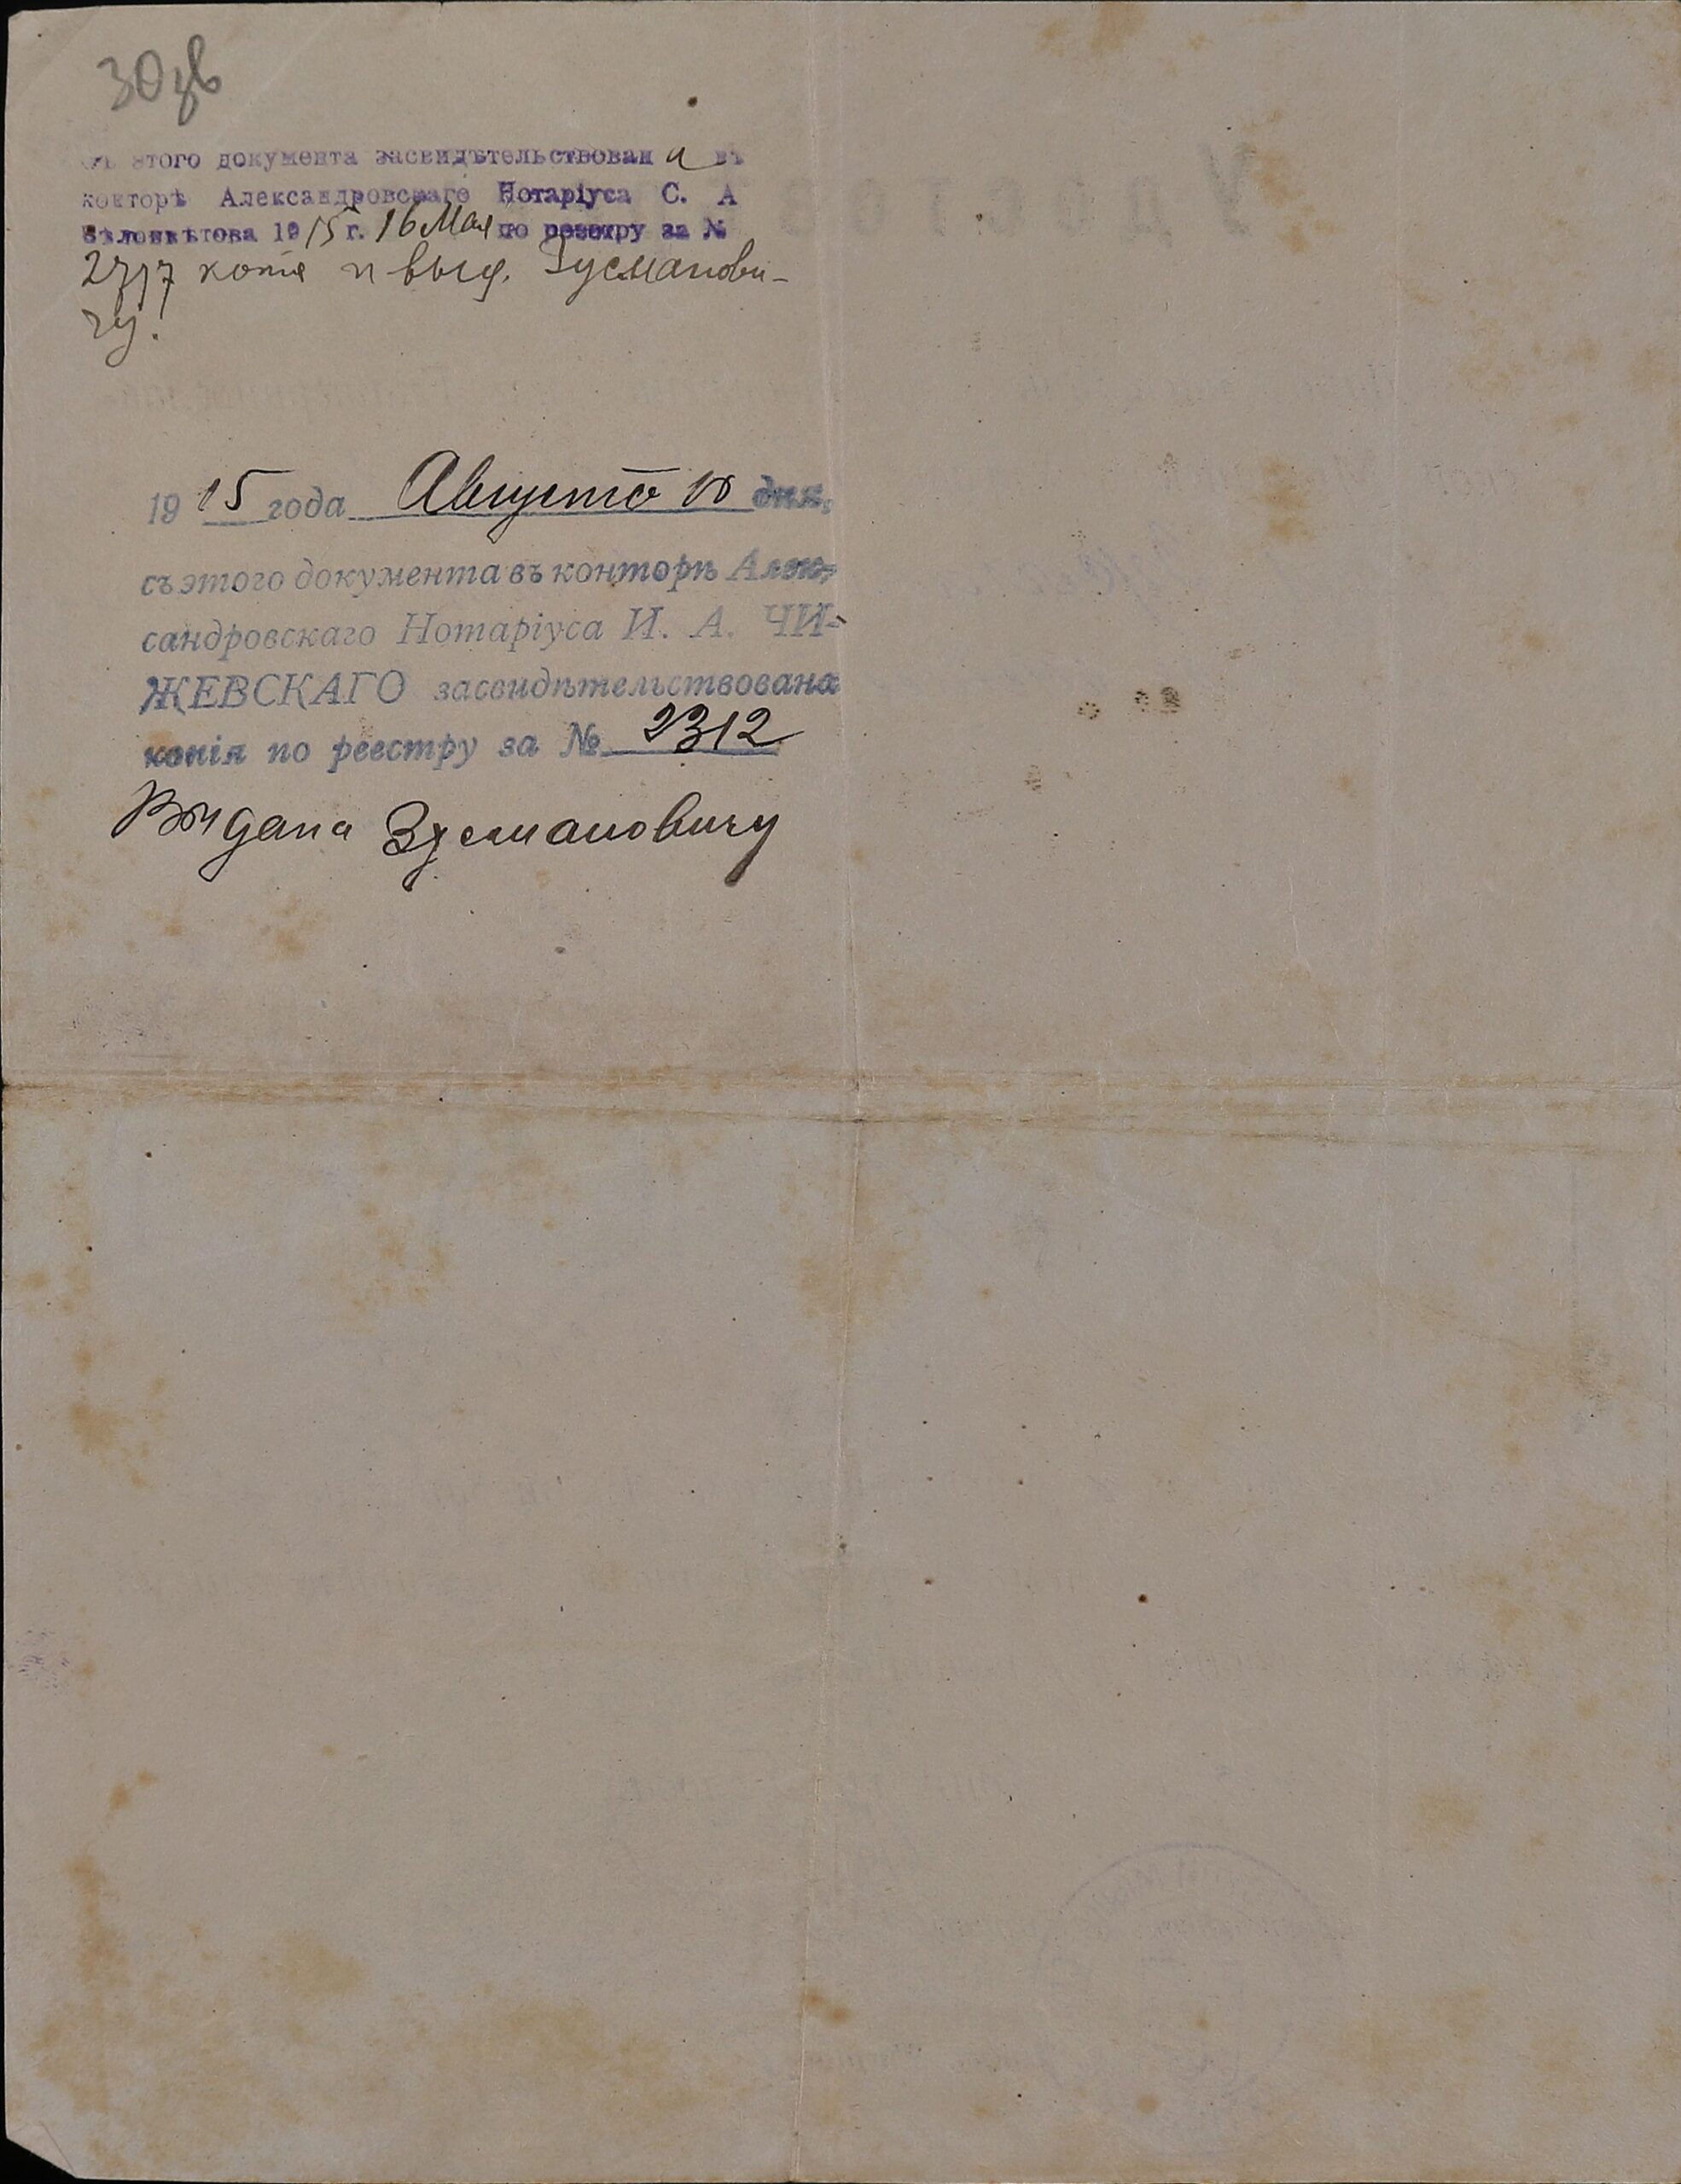 30 зв
съ этого документа засвидѣтельствована въ
конторѣ Александровскаго Нотаріуса С. А
Бѣлоцвѣтова 1915 г. 16 Мая по реестру за №
2717 копія и выд. Зусманови-
чу.
1915 года Августа 10 дня,
съ этого документа въ конторѣ Алек-
сандровскаго Нотаріуса И. А. ЧИ-
ЖЕВСКАГО засвидѣтельствована
копія по реестру за № 2312
Выдана Зусмановичу